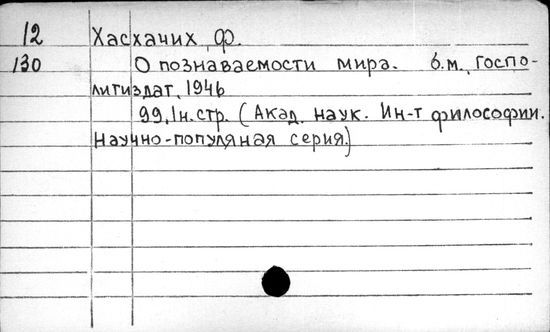 12 Хасхачих, Ф.
130 О познаваемости мира. б.м., Госпо-
литиздат, 1946
99,1н.стр. (Акад. наук. Ин-т философии.
Научно-популяная серия.)